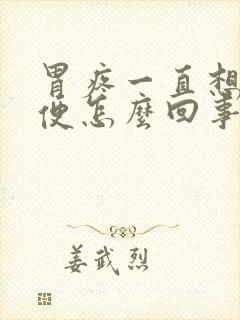 胃疼一直想
便怎麽回事
姜武烈